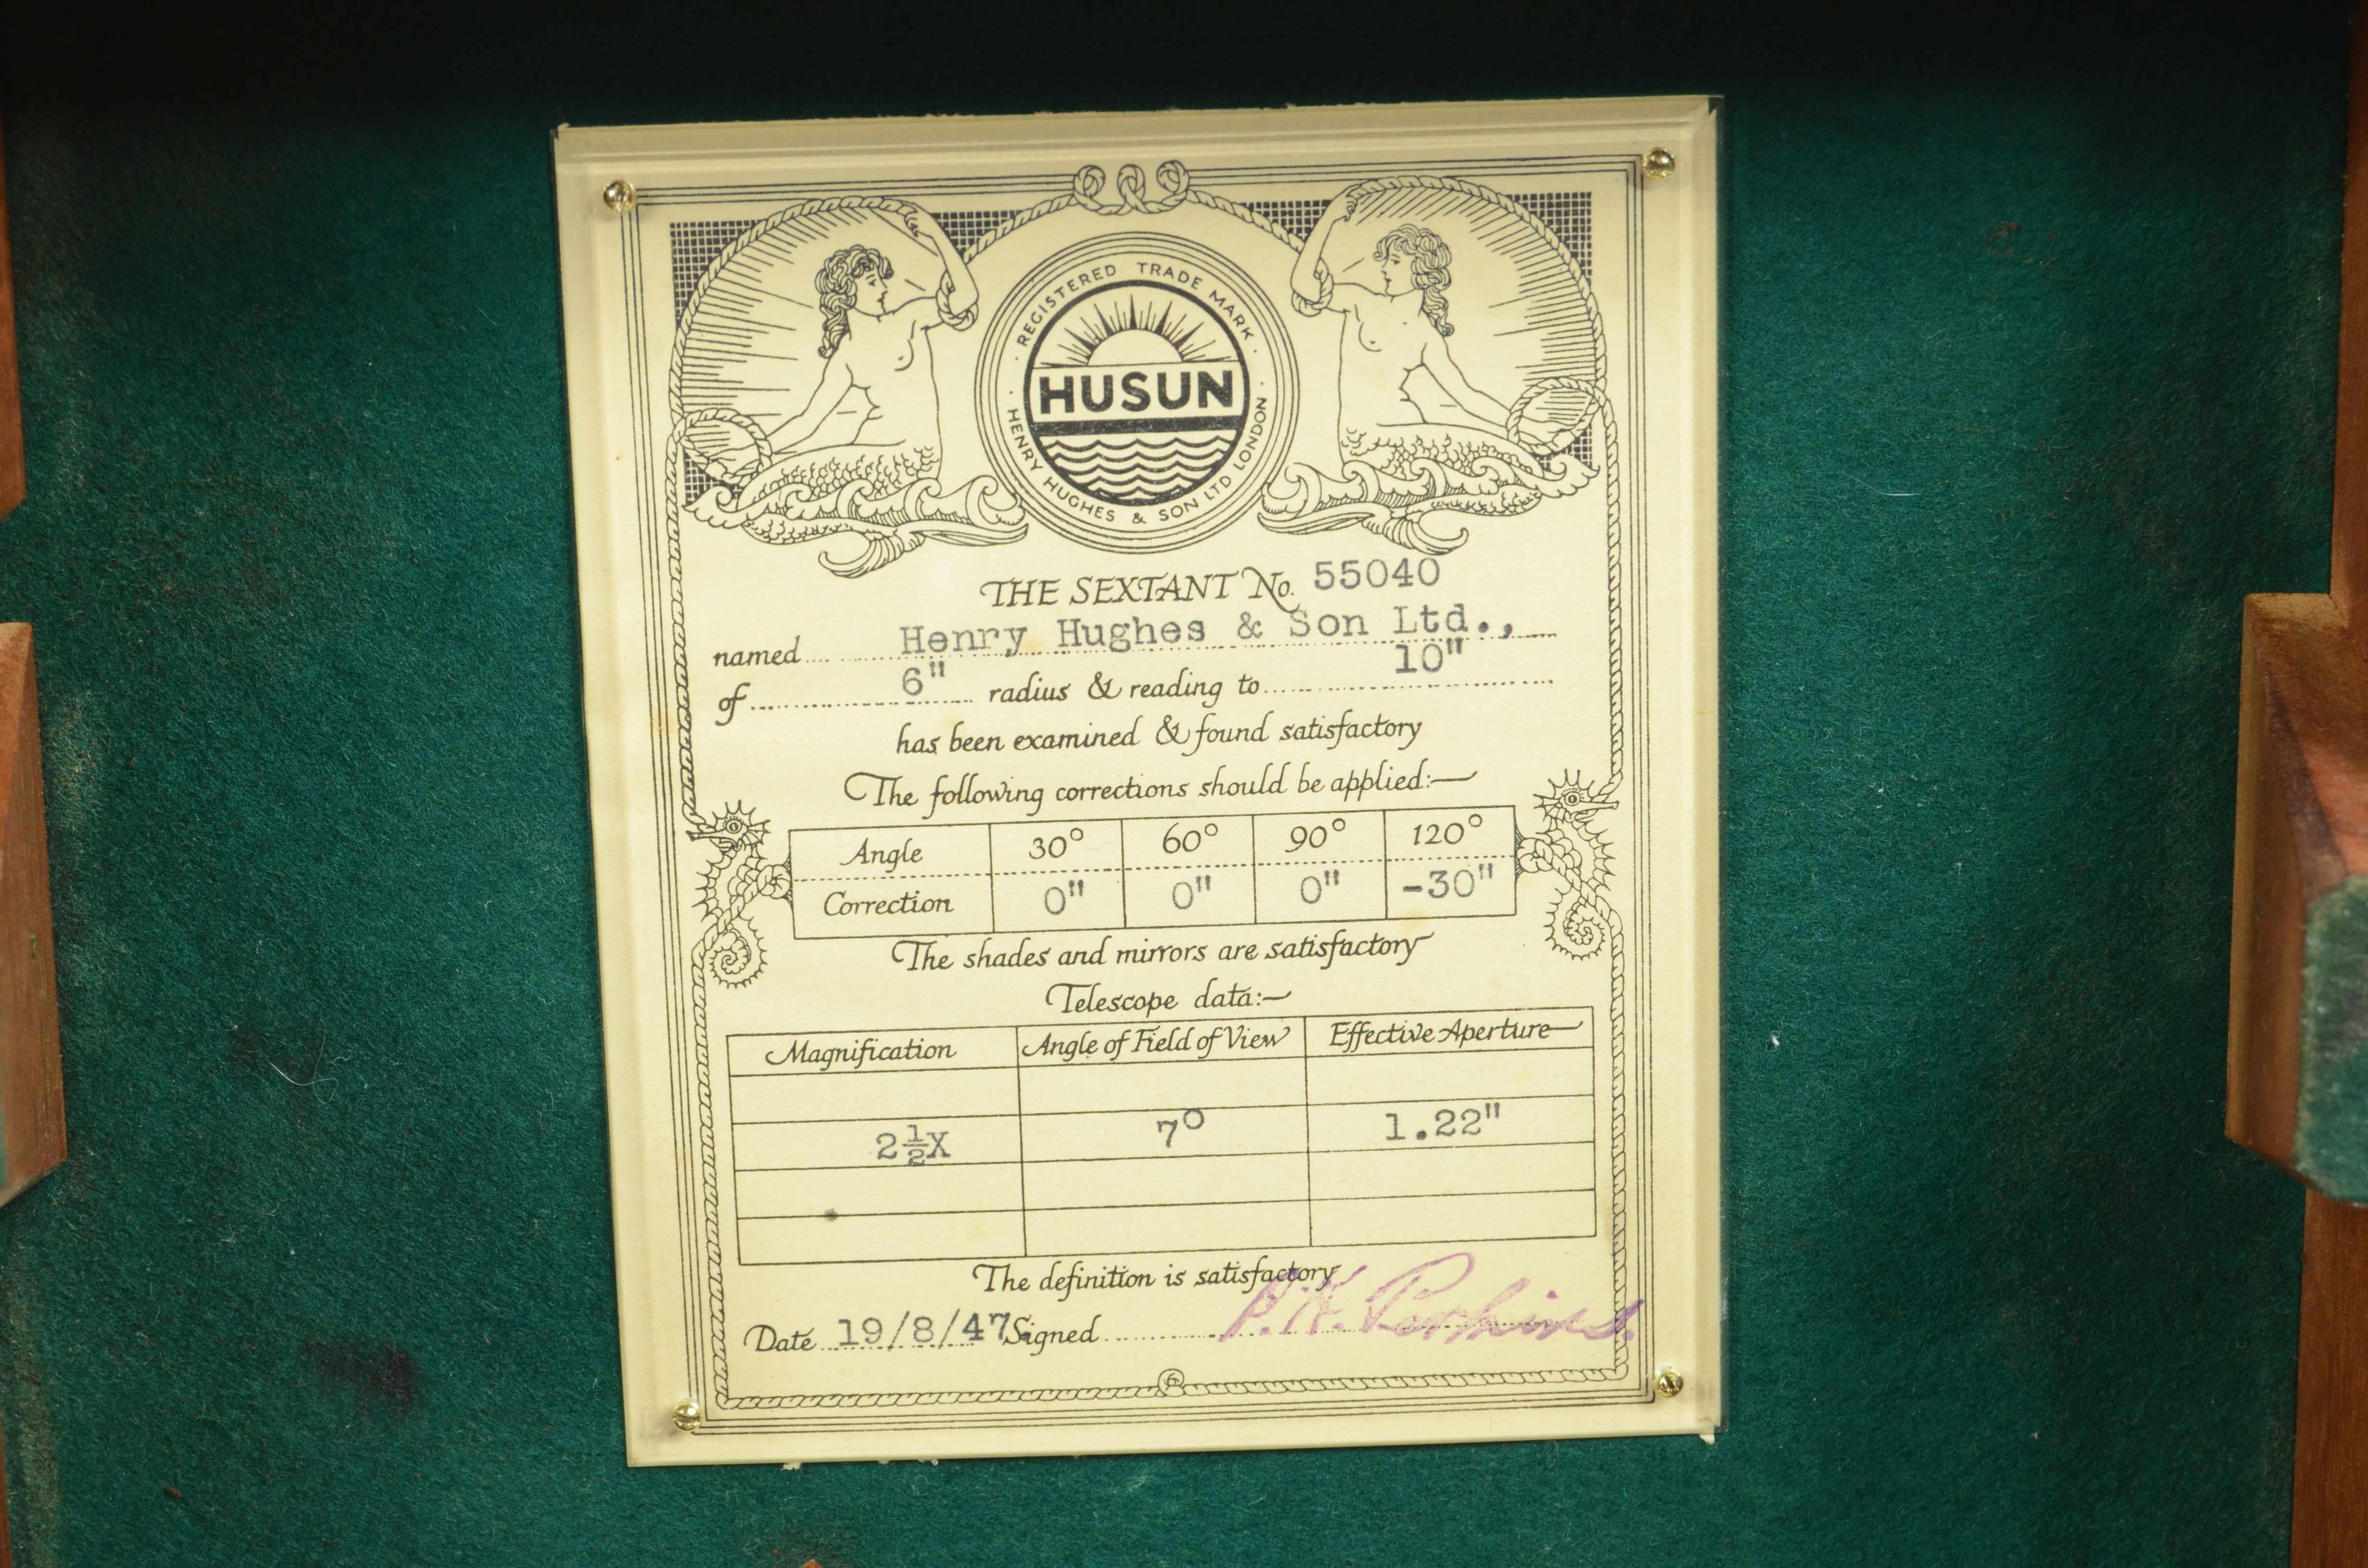 REGISTERED TRADE MARK
HUSUN
HENRY HUGHES & SON LTD LONDON
THE SEXTANT No. 55040
named Henry Hughes & Son Ltd.,
of 6" radius & reading to 10"
has been examined & found satisfactory
The following corrections should be applied:—
Angle 30° 60° 90° 120°
Correction 0" 0" 0" -30"
The shades and mirrors are satisfactory
Telescope data:—
Magnification Angle of Field of View Effective Aperture
2½X 7° 1.22"
The definition is satisfactory
Date 19/8/47. Signed P.W. Perkins.